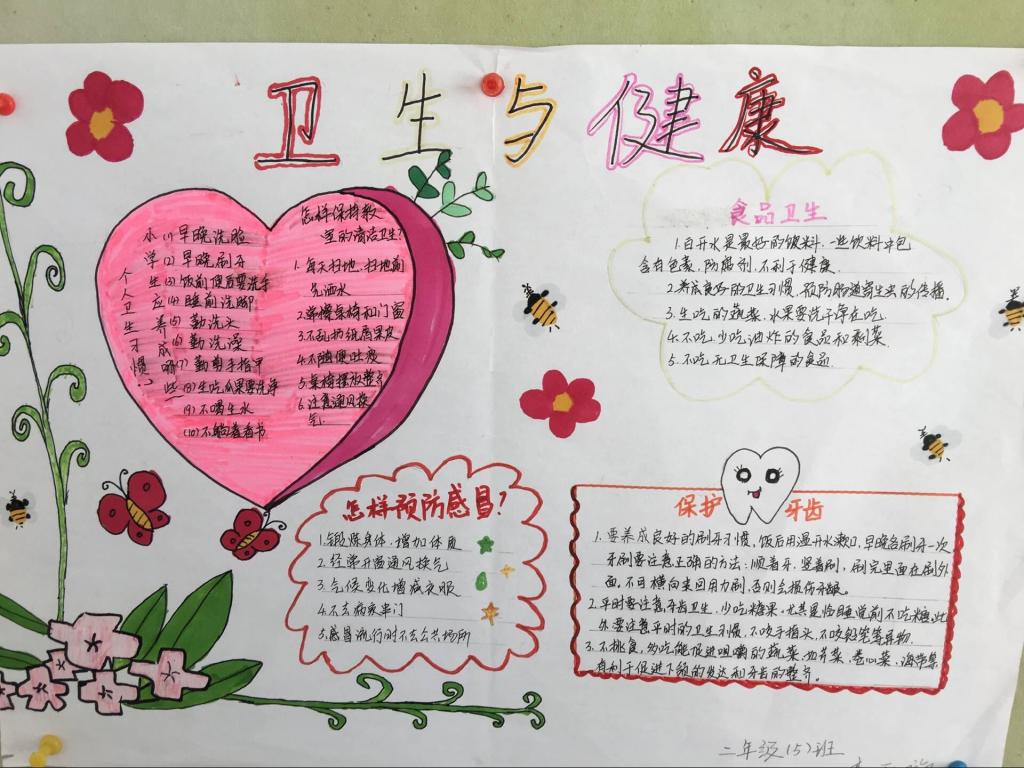 卫生与健康
小学生应养成哪些
个人卫生习惯?
(1) 早晚洗脸
(2) 早晚刷牙
(3) 饭前便后要洗手
(4) 睡前洗脚
(5) 勤洗头
(6) 勤洗澡
(7) 勤剪手指甲
(8) 生吃瓜果要洗净
(9) 不喝生水
(10) 不躺着看书
怎样保持教
室的清洁卫生?
1. 每天扫地,扫地前
先洒水
2. 擦桌椅和门窗
3. 不乱扔纸屑果皮
4. 不随便吐痰
5. 桌椅摆放整齐
6. 注意通风换
气.
食品卫生
1. 白开水是最好的饮料,一些饮料中包
含有色素,防腐剂,不利于健康.
2. 养成良好的卫生习惯,预防肠道寄生虫的传播.
3. 生吃的蔬菜,水果要洗干净在吃.
4. 不吃,少吃油炸的食品和剩菜.
5. 不吃无卫生保障的食品.
怎样预防感冒?
1. 锻炼身体,增加体质
2. 经常开窗通风换气
3. 气候变化增减衣服
4. 不去病家串门
5. 感冒流行时不去公共场所
保护牙齿
1. 要养成良好的刷牙习惯,饭后用温开水漱口,早晚各刷牙一次
牙刷要注意正确的方法:顺着牙,竖着刷,刷完里面在刷外
面。不可横向来回用力刷,否则会损伤牙龈。
2. 平时要注意牙齿卫生,少吃糖果,尤其是临睡觉前不吃糖此
外要注意平时的卫生习惯,不咬手指头,不咬铅笔等异物.
3. 不挑食,多吃能促进咀嚼的蔬菜,如芹菜,卷心菜,海带等
有利于促进下颌的发达和牙齿的整齐。
二年级(5)班